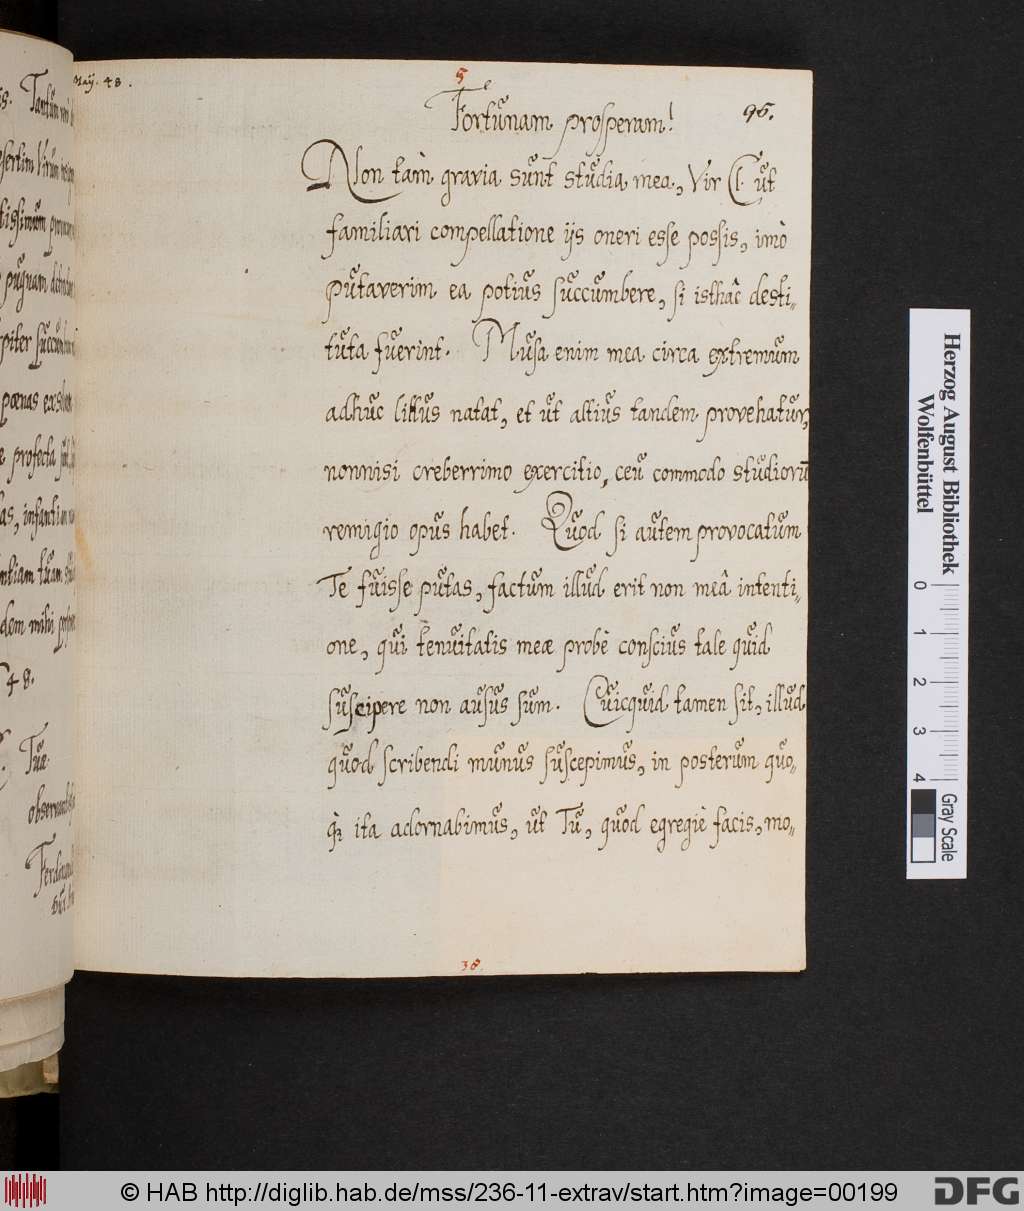 Maÿ. 48.
5
96.
Fortunam prosperam!
Non tàm gravia sunt studia mea, Vir Cl. ut
familiari compellatione ijs oneri esse possis, imò
putaverim ea potius succumbere, si isthâc desti-
tuta fuerint. Musa enim mea circa extremum
adhuc littus natat, et ut altius tandem provehatur,
nonnisi creberrimo exercitio, ceu commodo studiorū
remigio opus habet. Quod si autem provocatum
Te fuisse putas, factum illud erit non meâ intenti-
one, qui tenuitatis meæ probè conscius tale quid
suscipere non ausus sum. Quicquid tamen sit, illud
quod scribendi munus suscepimus, in posterum quo-
qꝫ ita adornabimus, ut Tu, quod egregiè facis, mo-
38.
Tantum
Virum
pugnam
pœnas
profecta
infantiam
tuam
dem mihi
48.
Tuæ
Herzog August Bibliothek
Wolfenbüttel
0 1 2 3 4
Gray Scale
© HAB http://diglib.hab.de/mss/236-11-extrav/start.htm?image=00199
DFG